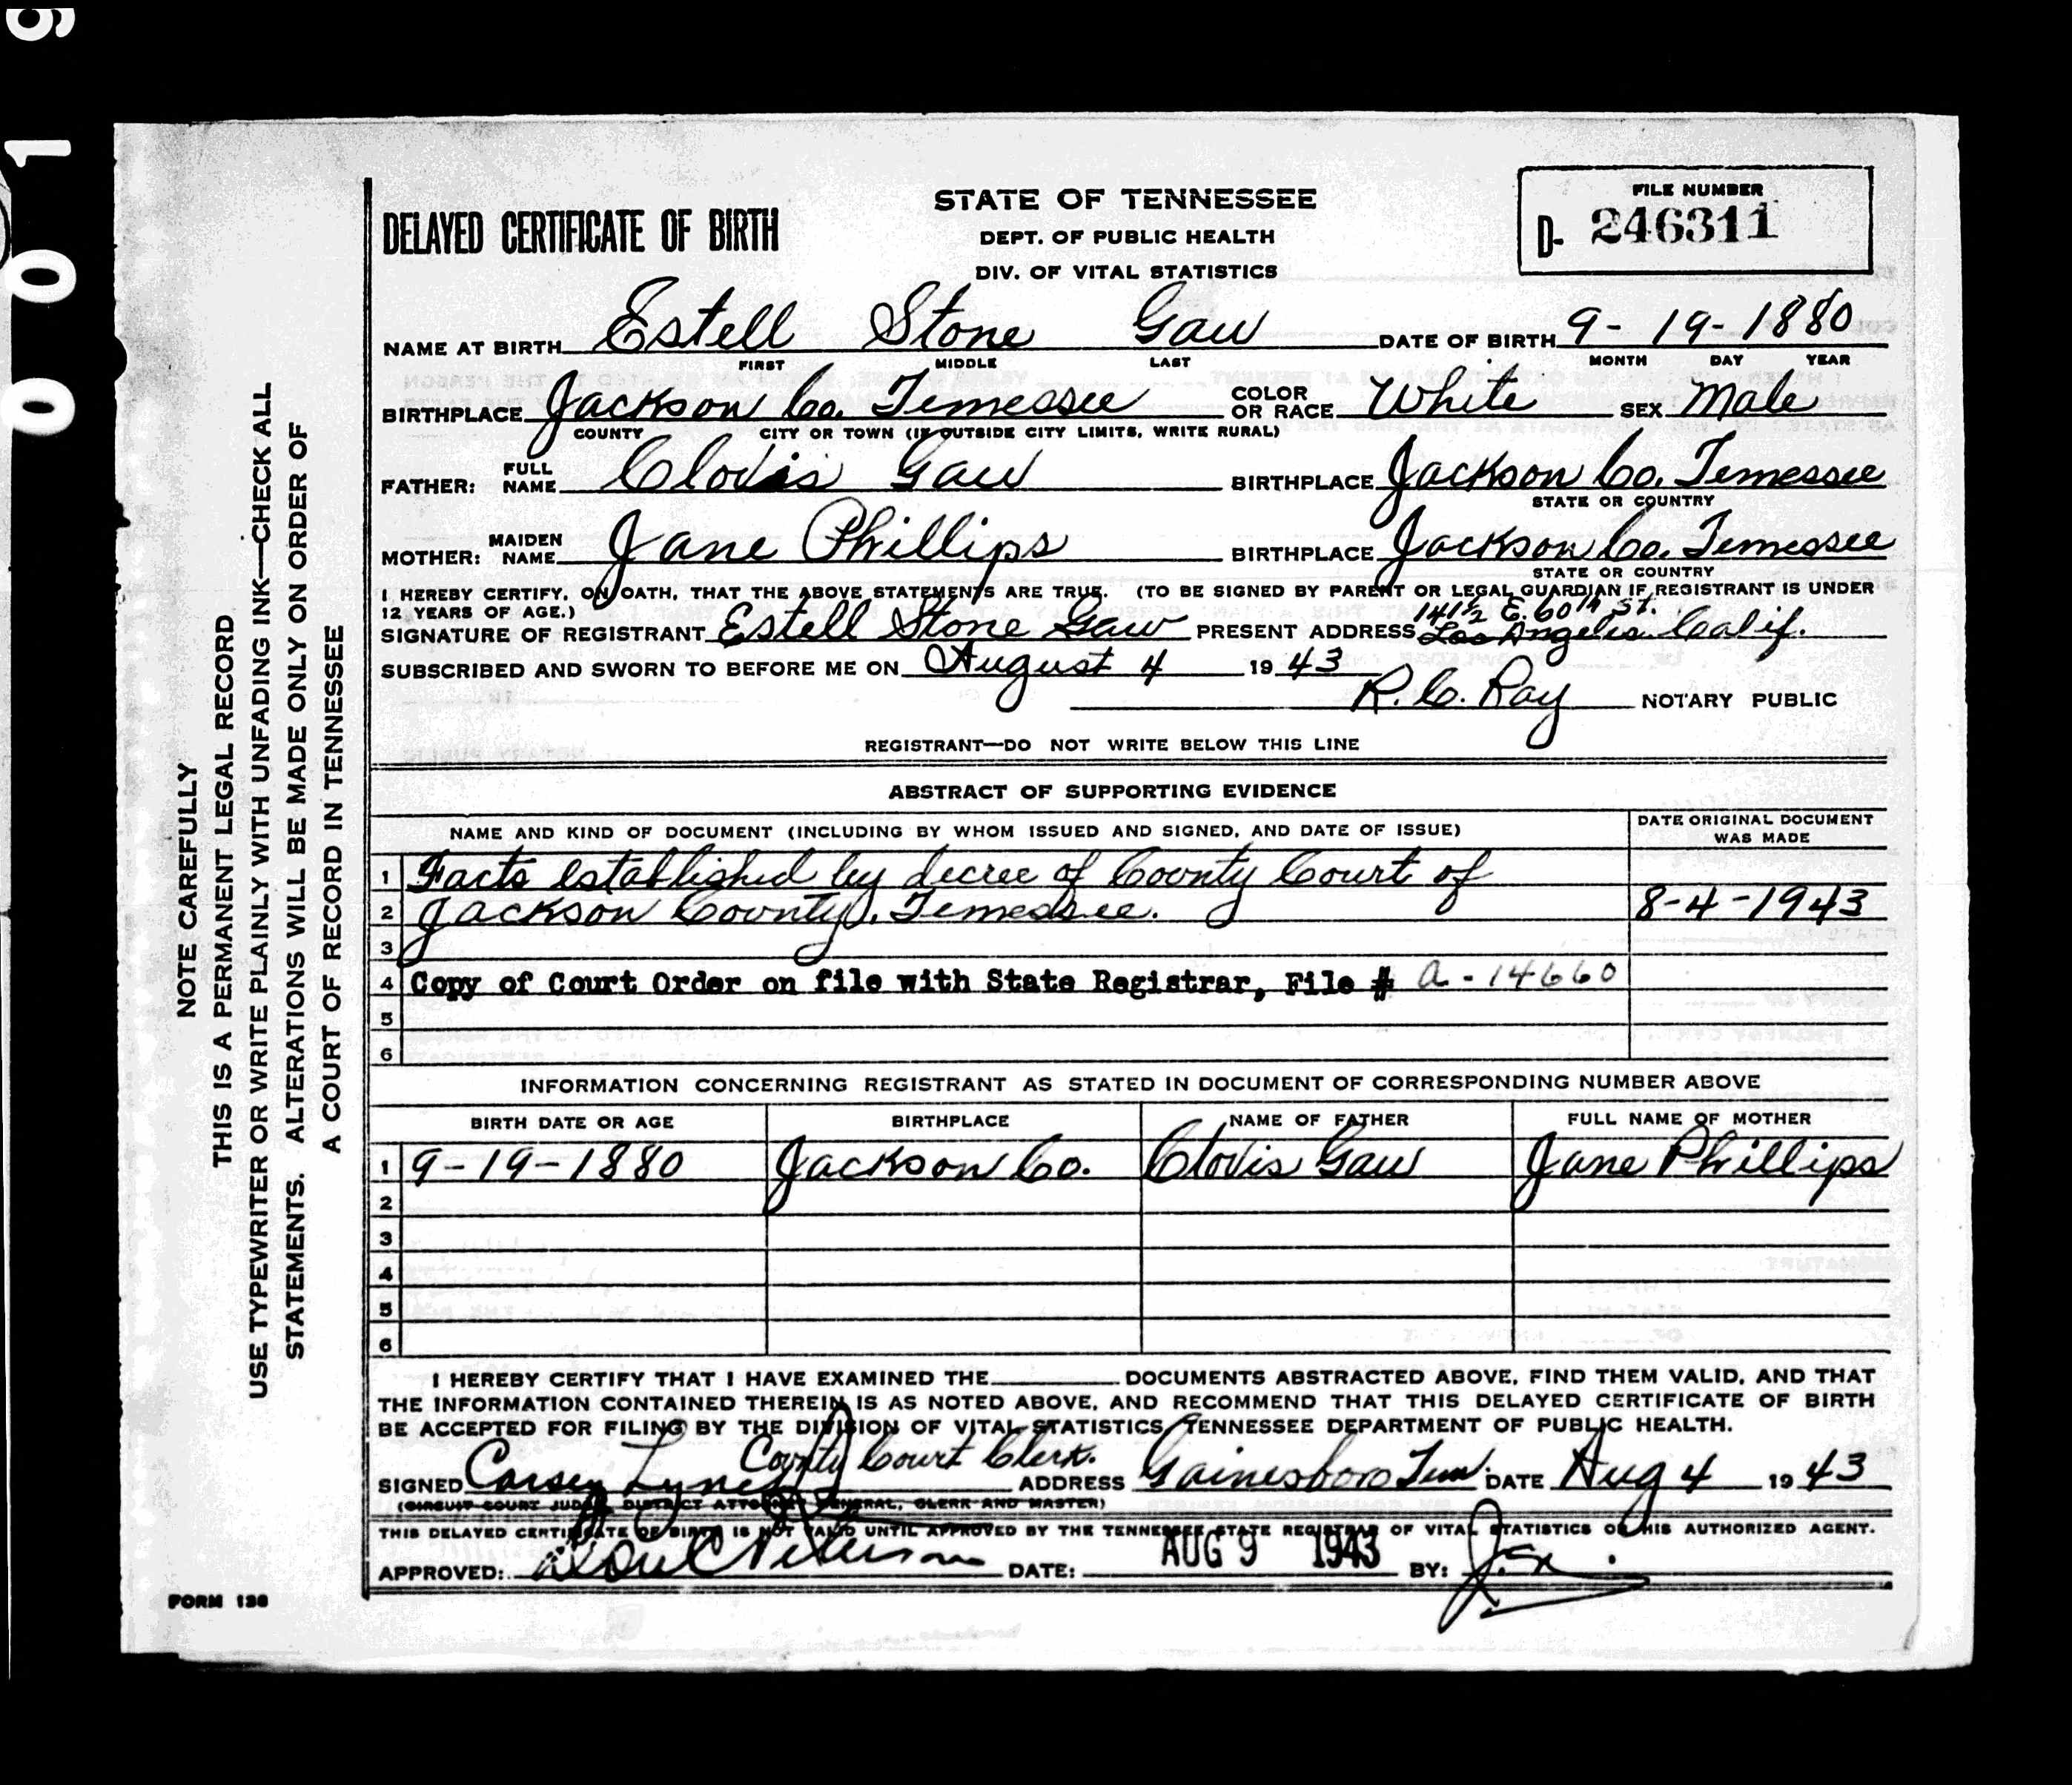 0 0 1 9
NOTE CAREFULLY
THIS IS A PERMANENT LEGAL RECORD
USE TYPEWRITER OR WRITE PLAINLY WITH UNFADING INK—CHECK ALL
STATEMENTS. ALTERATIONS WILL BE MADE ONLY ON ORDER OF
A COURT OF RECORD IN TENNESSEE
DELAYED CERTIFICATE OF BIRTH
STATE OF TENNESSEE
DEPT. OF PUBLIC HEALTH
DIV. OF VITAL STATISTICS
FILE NUMBER
D- 246311
NAME AT BIRTH Estell Stone Gaw DATE OF BIRTH 9-19-1880
FIRST MIDDLE LAST MONTH DAY YEAR
BIRTHPLACE Jackson Co. Tennessee COLOR OR RACE White SEX Male
COUNTY CITY OR TOWN (IF OUTSIDE CITY LIMITS, WRITE RURAL)
FATHER: FULL NAME Clovis Gaw BIRTHPLACE Jackson Co. Tennessee
STATE OR COUNTRY
MOTHER: MAIDEN NAME Jane Phillips BIRTHPLACE Jackson Co. Tennessee
STATE OR COUNTRY
I HEREBY CERTIFY, ON OATH, THAT THE ABOVE STATEMENTS ARE TRUE. (TO BE SIGNED BY PARENT OR LEGAL GUARDIAN IF REGISTRANT IS UNDER
12 YEARS OF AGE.)
141½ E. 60th St.
SIGNATURE OF REGISTRANT Estell Stone Gaw PRESENT ADDRESS Los Angeles. Calif.
SUBSCRIBED AND SWORN TO BEFORE ME ON August 4 1943
R. C. Ray NOTARY PUBLIC
REGISTRANT—DO NOT WRITE BELOW THIS LINE
ABSTRACT OF SUPPORTING EVIDENCE
NAME AND KIND OF DOCUMENT (INCLUDING BY WHOM ISSUED AND SIGNED, AND DATE OF ISSUE) DATE ORIGINAL DOCUMENT WAS MADE
1 Facts established by decree of County Court of
2 Jackson County, Tennessee. 8-4-1943
3
4 Copy of Court Order on file with State Registrar, File # a-14660
5
6
INFORMATION CONCERNING REGISTRANT AS STATED IN DOCUMENT OF CORRESPONDING NUMBER ABOVE
BIRTH DATE OR AGE BIRTHPLACE NAME OF FATHER FULL NAME OF MOTHER
1 9-19-1880 Jackson Co. Clovis Gaw Jane Phillips
2
3
4
5
6
I HEREBY CERTIFY THAT I HAVE EXAMINED THE DOCUMENTS ABSTRACTED ABOVE, FIND THEM VALID, AND THAT
THE INFORMATION CONTAINED THEREIN IS AS NOTED ABOVE, AND RECOMMEND THAT THIS DELAYED CERTIFICATE OF BIRTH
BE ACCEPTED FOR FILING BY THE DIVISION OF VITAL STATISTICS, TENNESSEE DEPARTMENT OF PUBLIC HEALTH.
County Court Clerk.
SIGNED ADDRESS Gainesboro Tenn. DATE Aug 4 1943
(CIRCUIT COURT JUDGE, DISTRICT ATTORNEY GENERAL, CLERK AND MASTER)
THIS DELAYED CERTIFICATE OF BIRTH IS NOT VALID UNTIL APPROVED BY THE TENNESSEE STATE REGISTRAR OF VITAL STATISTICS OR HIS AUTHORIZED AGENT.
APPROVED: DATE: AUG 9 1943 BY:
FORM 136